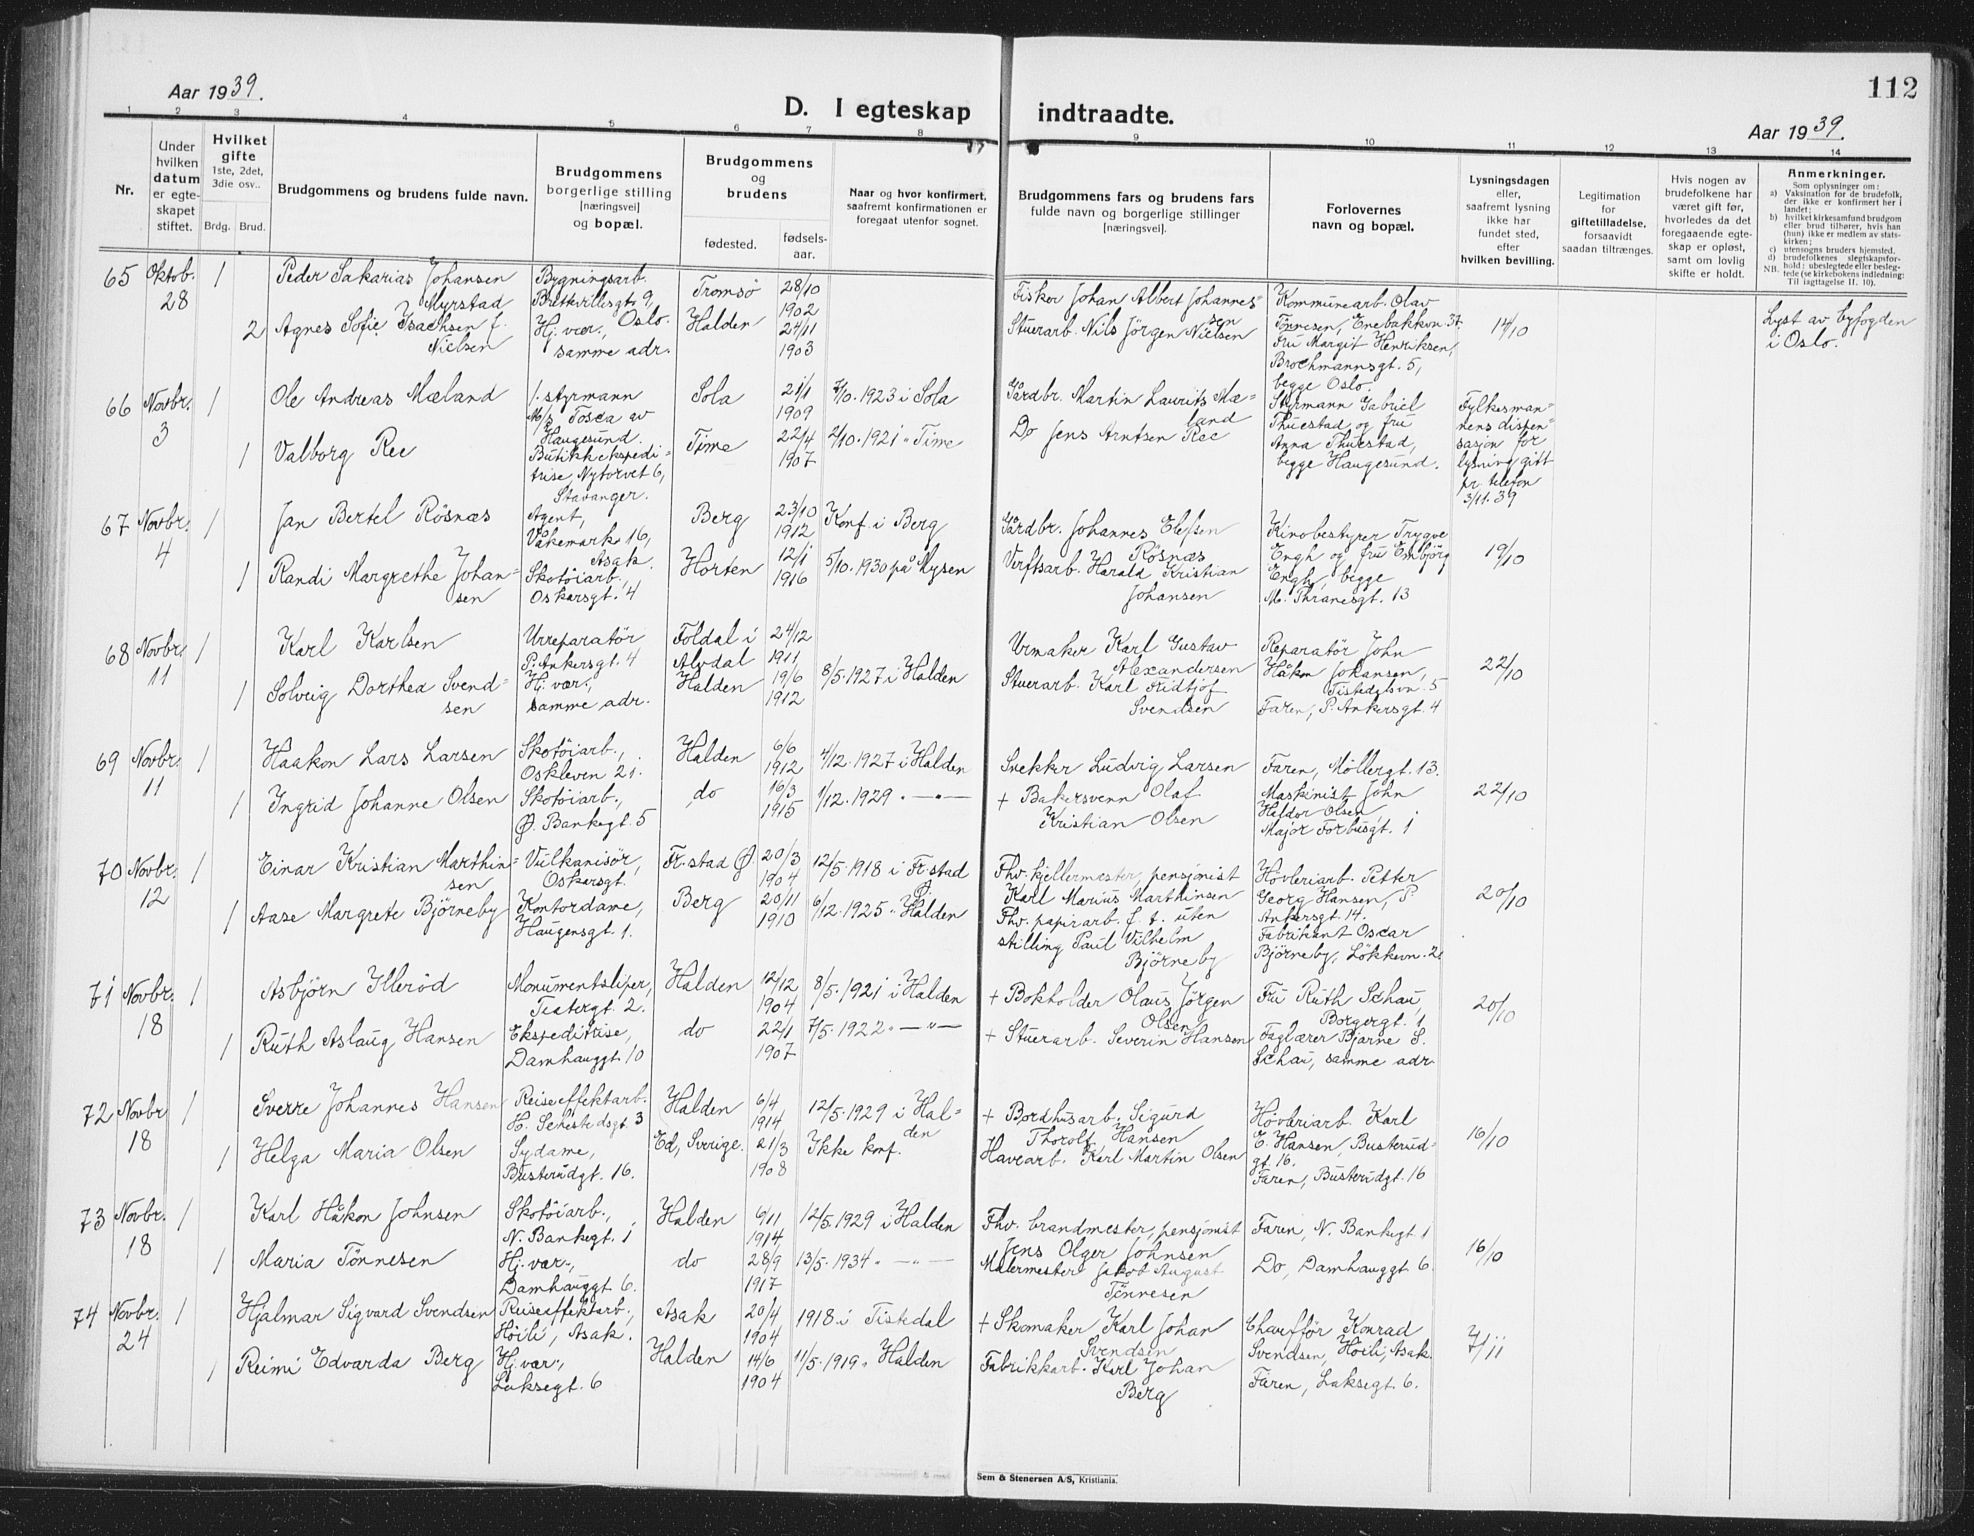 Aar 1939.
D. I egteskap indtraadte.
112
Aar 1939.
1 2 3 4 5 6 7 8 9 10 11 12 13 14
Nr.
Under hvilken datum er egteskapet stiftet.
Hvilket gifte
1ste, 2det, 3die osv..
Brdg. Brud.
Brudgommens og brudens fulde navn.
Brudgommens borgerlige stilling [næringsvei] og bopæl.
Brudgommens og brudens
fødested.
fødsels-aar.
Naar og hvor konfirmert, saafremt konfirmationen er foregaat utenfor sognet.
Brudgommens fars og brudens fars fulde navn og borgerlige stillinger [næringsvei].
Forlovernes navn og bopæl.
Lysningsdagen eller, saafremt lysning ikke har fundet sted, efter hvilken bevilling.
Legitimation for giftetilladelse, forsaavidt saadan tiltrænges.
Hvis nogen av brudefolkene har været gift før, hvorledes da det foregaaende egteskap er opløst, samt om lovlig skifte er holdt.
Anmerkninger.
Som oplysninger om:
a) Vaksination for de brudefolk, der ikke er konfirmert her i landet;
b) hvilket kirkesamfund brudgom eller brud tilhører, hvis han (hun) ikke er medlem av statskirken;
c) utensogns bruders hjemsted.
d) brudefolkenes slegtskapsforhold: ubeslegtede eller beslegtede (se kirkebokens indledning:
NB. Til iagttagelse II. 10).
65 Oktob. 28 1 Peder Sakarias Johansen Myrstad
Bygningsarb. Brettevillesgt. 9, Oslo.
Tromsø 28/10 1902
Fisker Johan Albert Johannessen
Kommunearb. Olav Tönnesen, Enebakkvn 37. Fru Margit Henriksen, Brochmannsgt. 5, begge Oslo.
14/10
Lyst av byfogden i Oslo.
2 Agnes Sofie Isachsen f. Nielsen
Hj. vær., samme adr.
Halden 24/11 1903
Stuerarb. Nils Jörgen Nielsen
66 Novbr. 3 1 Ole Andreas Mæland
1. styrmann M/s Tosca av Haugesund.
Sola 21/1 1909
7/10. 1923 i Sola
Gårdbr. Martin Laurits Mæland
Styrmann Gabriel Thuestad og fru Anna Thuestad, begge Haugesund.
Fylkesmannens dispensasjon for lysning gitt pr. telefon 3/11.39
1 Valborg Ree
Butikkekspeditrise, Nytorvet 6, Stavanger.
Time 22/4 1907
2/10. 1921 " Time
Do Jens Arntsen Ree
67 Novbr. 4 1 Jan Bertel Rösnæs
Agent, Våkemark 16, Asak.
Berg 23/10 1912
Konf. i Berg
Gårdbr. Johannes Elefsen Rösnæs
Kinobestyrer Trygve Engh og fru Embjörg Engh, begge M. Thranesgt. 13
19/10
1 Randi Margrethe Johansen
Skotöiarb., Oskarsgt. 4
Horten 12/1 1916
5/10. 1930 på Mysen
Verftsarb. Harald Kristian Johansen
68 Novbr. 11 1 Karl Karlsen
Urreparatör P. Ankersgt. 4
Foldal i Alvdal 24/12 1911
Urmaker Karl Gustav Alexandersen
Reparatör John Håkon Johansen, Tistedalsvn. 5
22/10
1 Solveig Dorthea Svendsen
Hj. vær., samme adr.
Halden 19/6 1912
8/5. 1927 i Halden
Stuerarb. Karl Fridtjof Svendsen
Faren, P. Ankersgt. 4
69 Novbr. 11 1 Haakon Lars Larsen
Skotöiarb., Oskleven 21.
Halden 6/6 1912
4/12. 1927 i Halden
Snekker Ludvig Larsen
Faren, Möllergt. 13.
22/10
1 Ingrid Johanne Olsen
Skotöiarb., Ø. Bankegt. 5
do 16/3 1915
1/12. 1929 " — " —
+ Bakersvenn Olaf Kristian Olsen
Maskinist John Heldor Olsen Major Forbusgt. 1
70 Novbr. 12 1 Einar Kristian Marthinsen
Vulkanisör, Oskarsgt.
Fr.stad Ø. 20/3 1904
12/5. 1918 i Fr.stad Ø.
Fhv. kjellermester, pensjonist Karl Marius Marthinsen
Hövleriarb. Petter Georg Hansen, P. Ankersgt. 14.
20/10
1 Aase Margrete Björneby
Kontordame, Haugensgt. 1.
Berg 20/11 1910
6/12. 1925 " Halden
Fhv. papirarb. f. t. uten stilling Paul Vilhelm Björneby
Fabrikant Oscar Björneby, Lökkevn. 21
71 Novbr. 18 1 Asbjörn Illeröd
Monumentsliper, Teatergt. 2.
Halden 12/12 1904
8/5. 1921 i Halden
+ Bokholder Olaus Jörgen Olsen
Fru Ruth Schau Borgergt. 1
20/10
1 Ruth Aslaug Hansen
Ekspeditrise, Damhauggt. 10
do 22/1 1907
7/5. 1922 " — " —
+ Stuerarb. Severin Hansen
Faglærer Bjarne S. Schau, samme adr.
72 Novbr. 18 1 Sverre Johannes Hansen
Reiseeffektarb. H. Sehestedsgt. 3
Halden 6/4 1914
12/5. 1929 i Halden
+ Bordhusarb. Sigurd Thorolf Hansen
Hövleriarb. Karl E. Hansen, Busterudgt. 16.
16/10
1 Helga Maria Olsen
Sydame, Busterudgt. 16.
Ed, Sverige. 21/3 1908
Ikke konf.
Havearb. Karl Martin Olsen
Faren, Busterudgt. 16
73 Novbr. 18 1 Karl Håkon Johnsen
Skotöiarb., N. Bankegt. 1
Halden 6/11 1914
12/5. 1929 i Halden
Fhv. brandmester, pensjonist Jens Olger Johnsen
Faren, N. Bankegt. 1
16/10
1 Maria Tönnesen
Hj. vær., Damhauggt. 6.
do 28/9 1917
13/5. 1934 " — " —
Malermester Jakob August Tönnesen
Do, Damhauggt. 6.
74 Novbr. 24 1 Hjalmar Sigvard Svendsen
Reiseeffektarb., Höili, Asak.
Asak 20/4 1904
1918 i Tistedal
+ Skomaker Karl Johan Svendsen
Chauffför Konrad Svendsen, Höili, Asak.
7/11
1 Reimi Edvarda Berg
Hj. vær., Laksegt. 6
Halden 14/6 1904
11/5. 1919 " Halden
Fabrikkarb. Karl Johan Berg
Faren, Laksegt. 6.
Sem & Stenersen A/S, Kristiania.